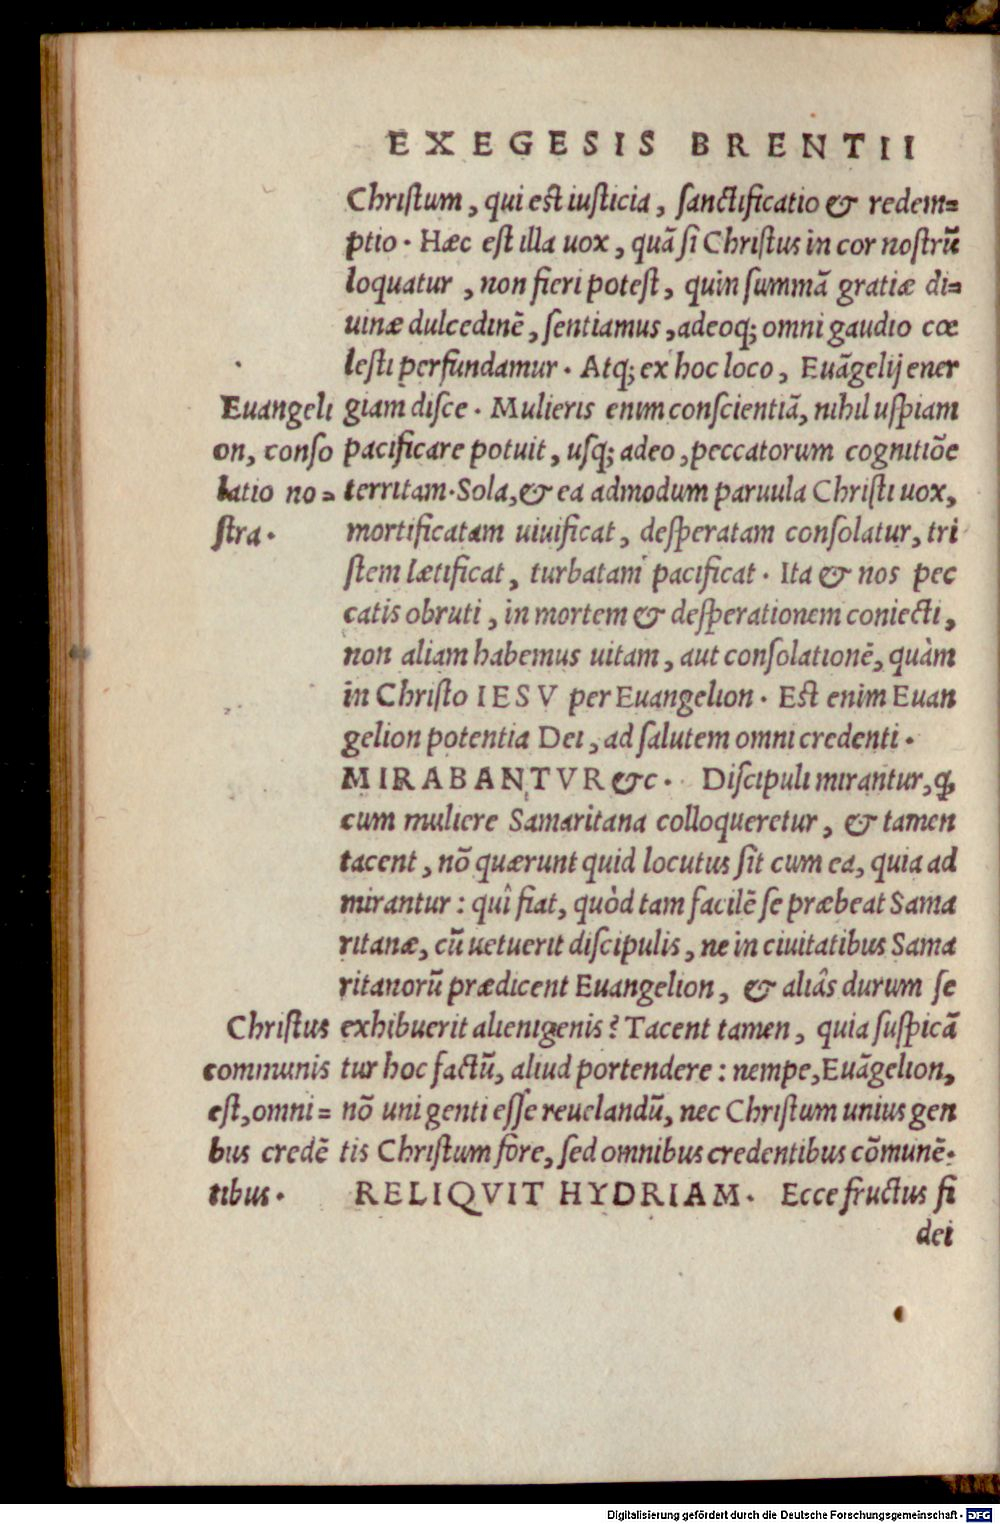 EXEGESIS BRENTII
Chriſtum, qui eſt iuſticia, ſanctificatio & redem=
ptio. Hæc eſt illa uox, quã ſi Chriſtus in cor noſtrũ
loquatur, non fieri poteſt, quin ſummã gratiæ di=
uinæ dulcedinẽ, ſentiamus, adeoq; omni gaudio cœ
leſti perfundamur. Atq; ex hoc loco, Euãgelij ener
giam diſce. Mulieris enim conſcientiã, nihil uſpiam
pacificare potuit, uſq; adeo, peccatorum cognitiõe
territam. Sola, & ea admodum paruula Chriſti uox,
mortificatam uiuificat, deſperatam conſolatur, tri
ſtem lætificat, turbatam pacificat. Ita & nos pec
catis obruti, in mortem & deſperationem coniecti,
non aliam habemus uitam, aut conſolationẽ, quàm
in Chriſto IESV per Euangelion. Eſt enim Euan
gelion potentia Dei, ad ſalutem omni credenti.
MIRABANTVR &c. Diſcipuli mirantur, ꝙ
cum muliere Samaritana colloqueretur, & tamen
tacent, nõ quærunt quid locutus ſit cum ea, quia ad
mirantur: quî fiat, quòd tam facilẽ ſe præbeat Sama
ritanæ, cũ uetuerit diſcipulis, ne in ciuitatibus Sama
ritanorũ prædicent Euangelion, & aliâs durum ſe
exhibuerit alienigenis? Tacent tamen, quia ſuſpicã
tur hoc factũ, aliud portendere: nempe, Euãgelion,
nõ uni genti eſſe reuelandũ, nec Chriſtum unius gen
tis Chriſtum fore, ſed omnibus credentibus cõmunẽ.
RELIQVIT HYDRIAM. Ecce fructus fi
dei
Euangeli
on, conſo
latio no=
ſtra.
Chriſtus
communis
eſt, omni=
bus credẽ
tibus.
Digitalisierung gefördert durch die Deutsche Forschungsgemeinschaft - DFG